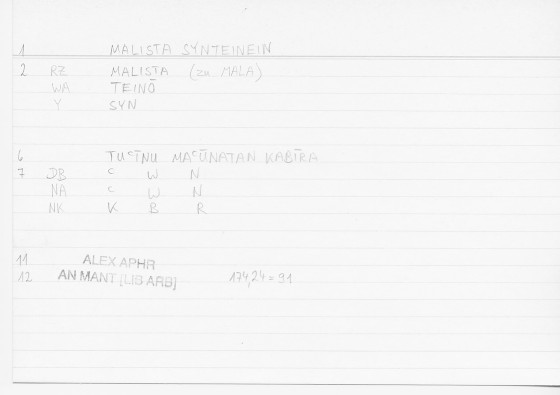 1 MALISTA SYNTEINEIN
2 RZ MALISTA (zu MALA)
WA TEINŌ
Y SYN
6 TUʿĪNU MAʿŪNATAN KABĪRA
7 DB ʿ W N
NA ʿ W N
NK K B R
11 ALEX APHR
12 AN MANT [LIB ARB] 174,24 = 31